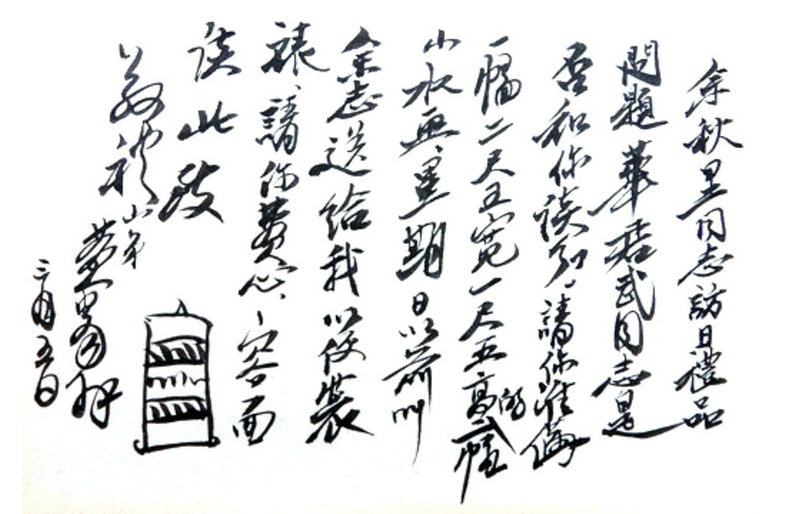 余秋里同志訪日禮品
問題華君武同志是
否和你谈到、請你准備
一幅二尺五寬一尺五高的
山水画、星期日以前叫
余志送给我以便装
裱、請你费心、容面
谈此致
敬礼
三月五日